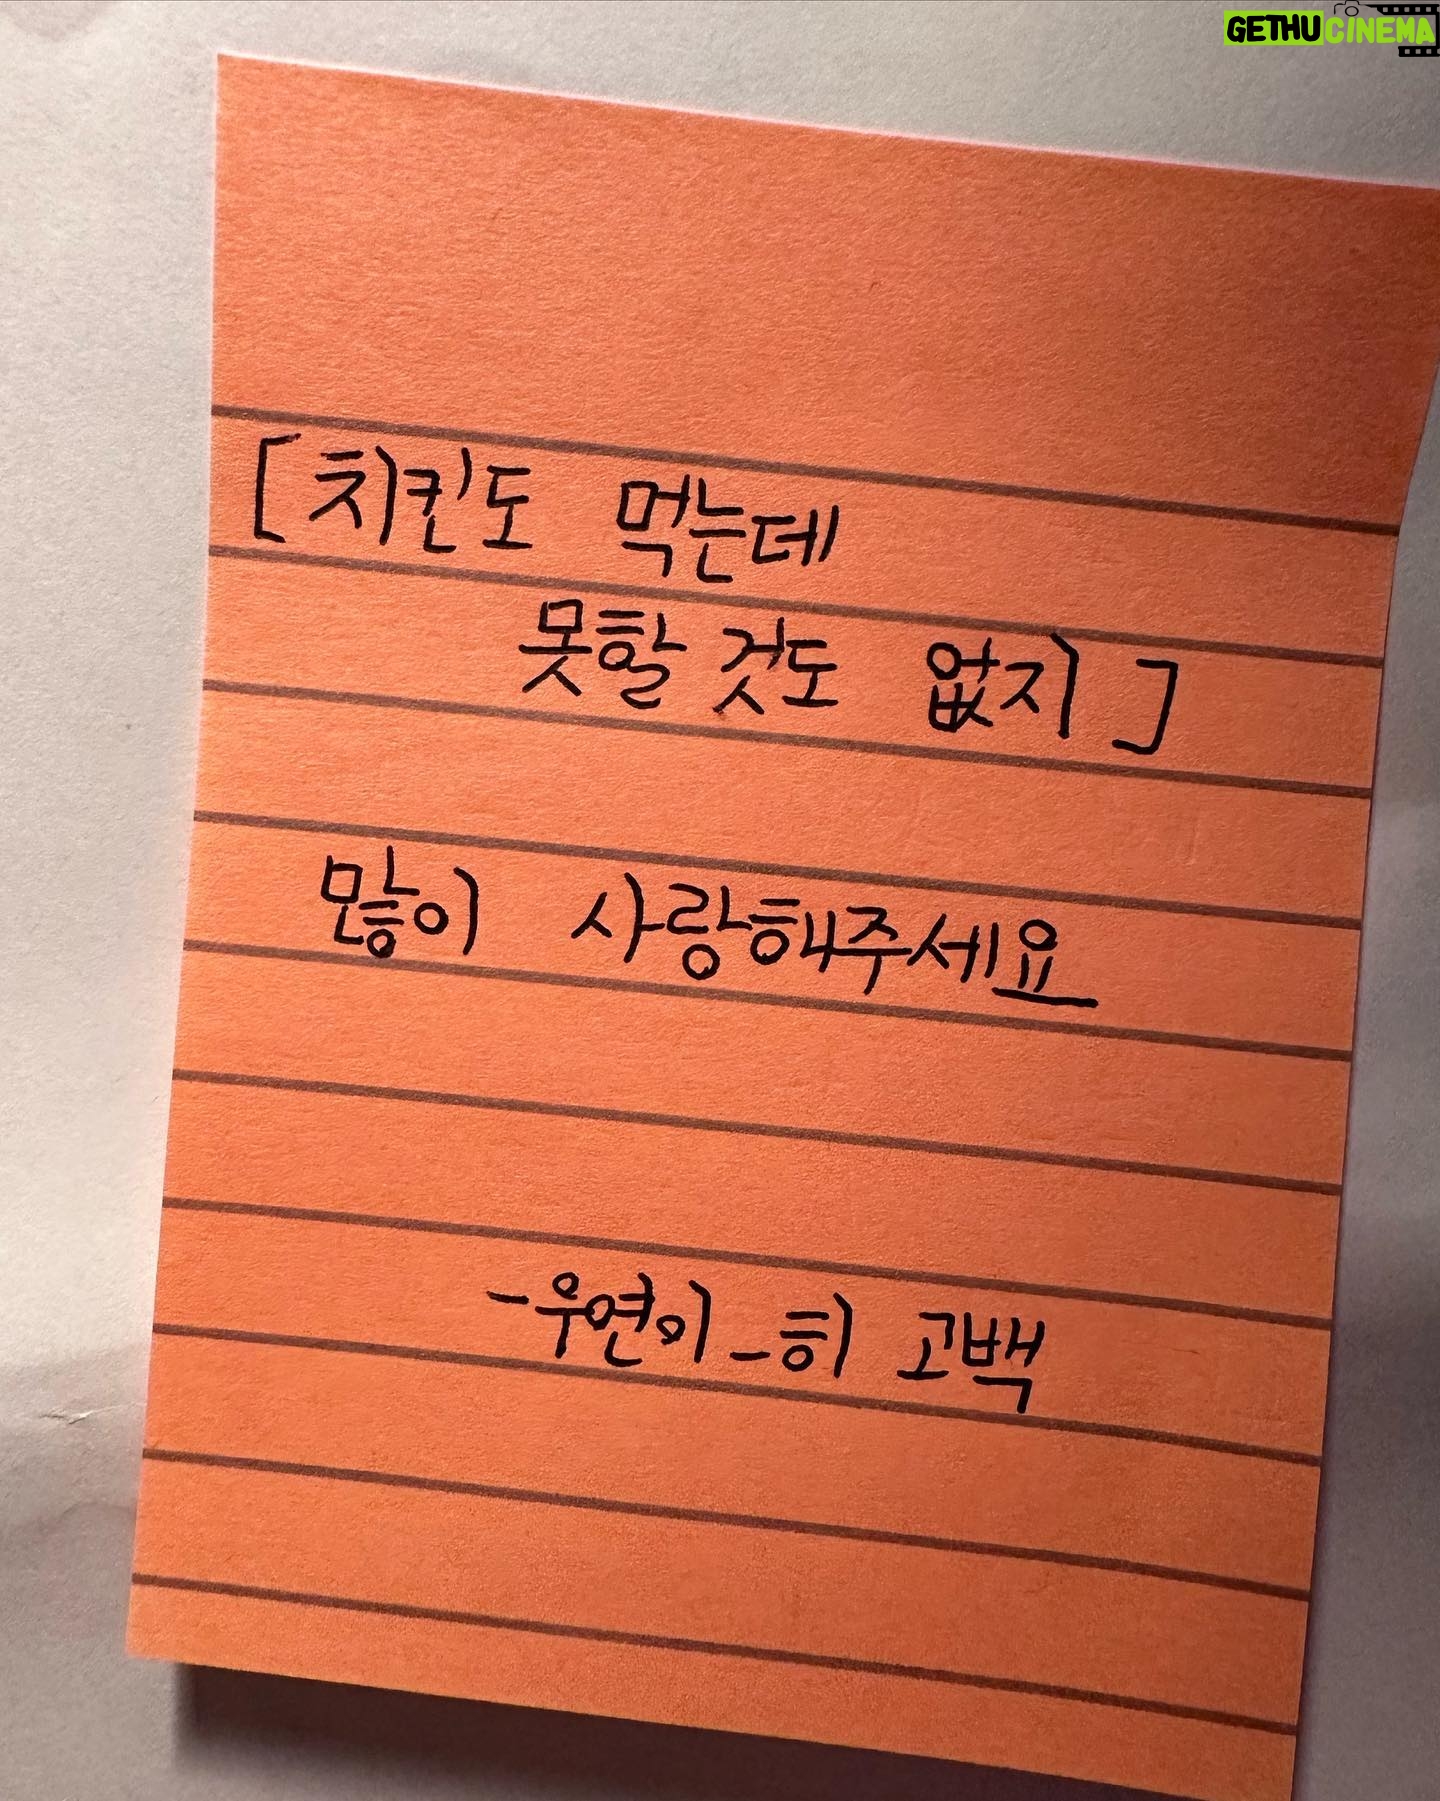 GETHUCINEMA
[ 치킨도 먹는데
못할 것도 없지 ]
많이 사랑해주세요
-우연이-히 고백